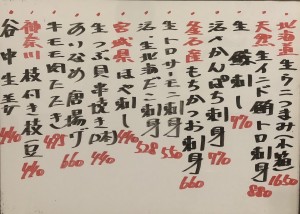 北海道 生ウニつまみ 1650
天然 生インド鮪トロ刺身 880
生 刺し 770
活〆かんぱち刺身 770
釜石産 もちかつお刺身 660
生トロサーモン刺身 550
活〆北海だこ刺身 528
宮城県 ほや刺し 440
生つぶ貝串焼き 440
あいなめ唐揚げ 660
牛モモ肉たたき 495
神奈川 枝付き枝豆 440
谷中生姜 440